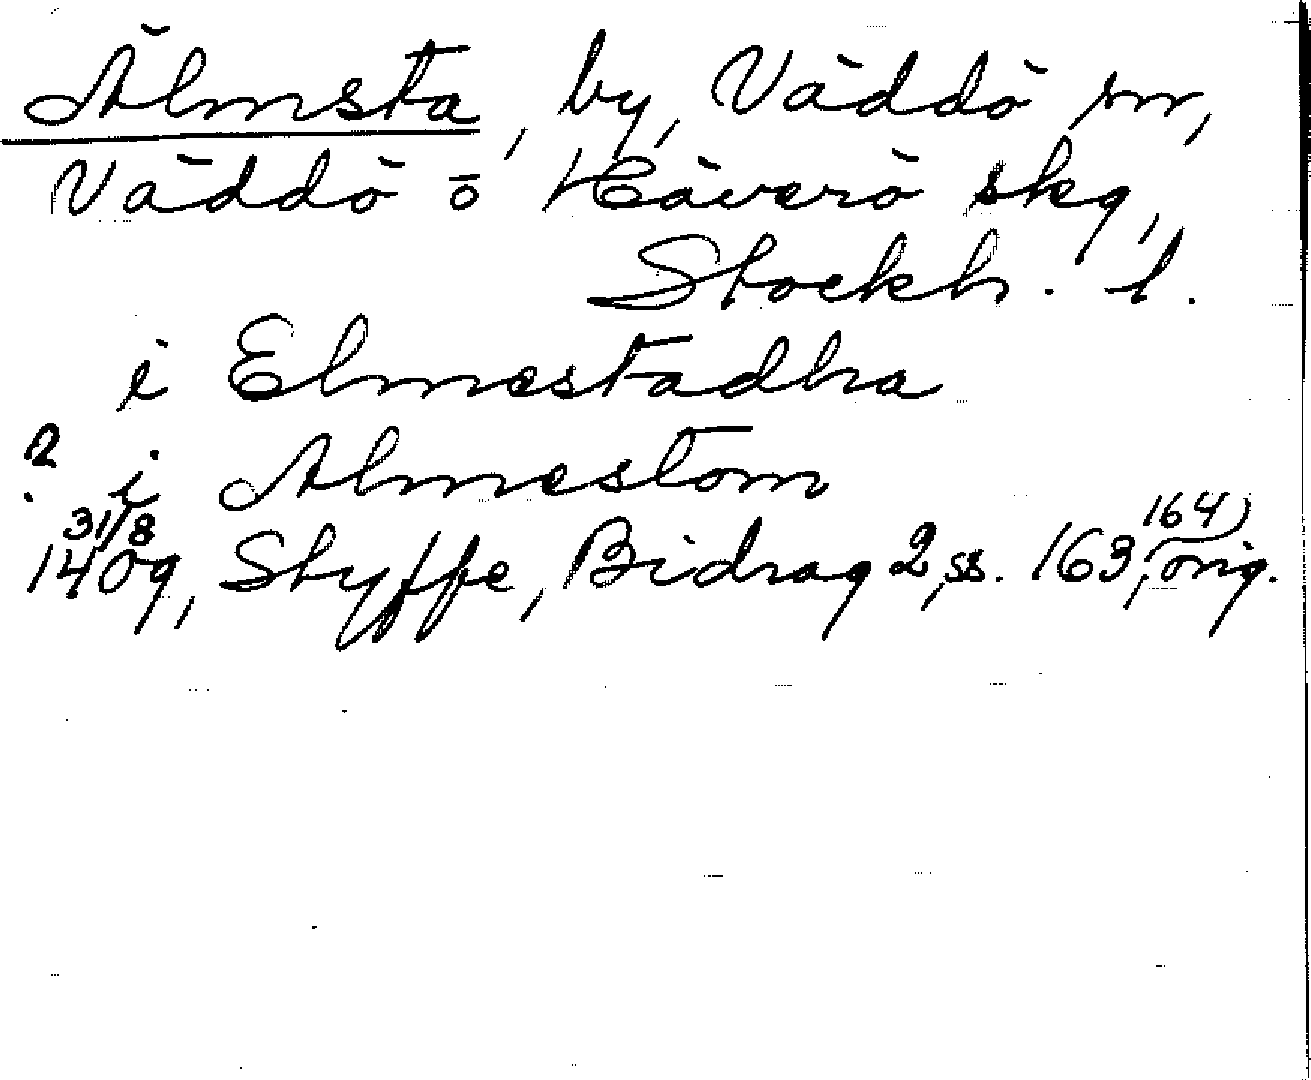 Älmsta, by, Väddö sn,
Väddö o Häverö skg,
Stockh. l.
i Elmestadha
? i Almestom
31/8 1409, Styffe, Bidrag 2, ss. 163, 164, orig.